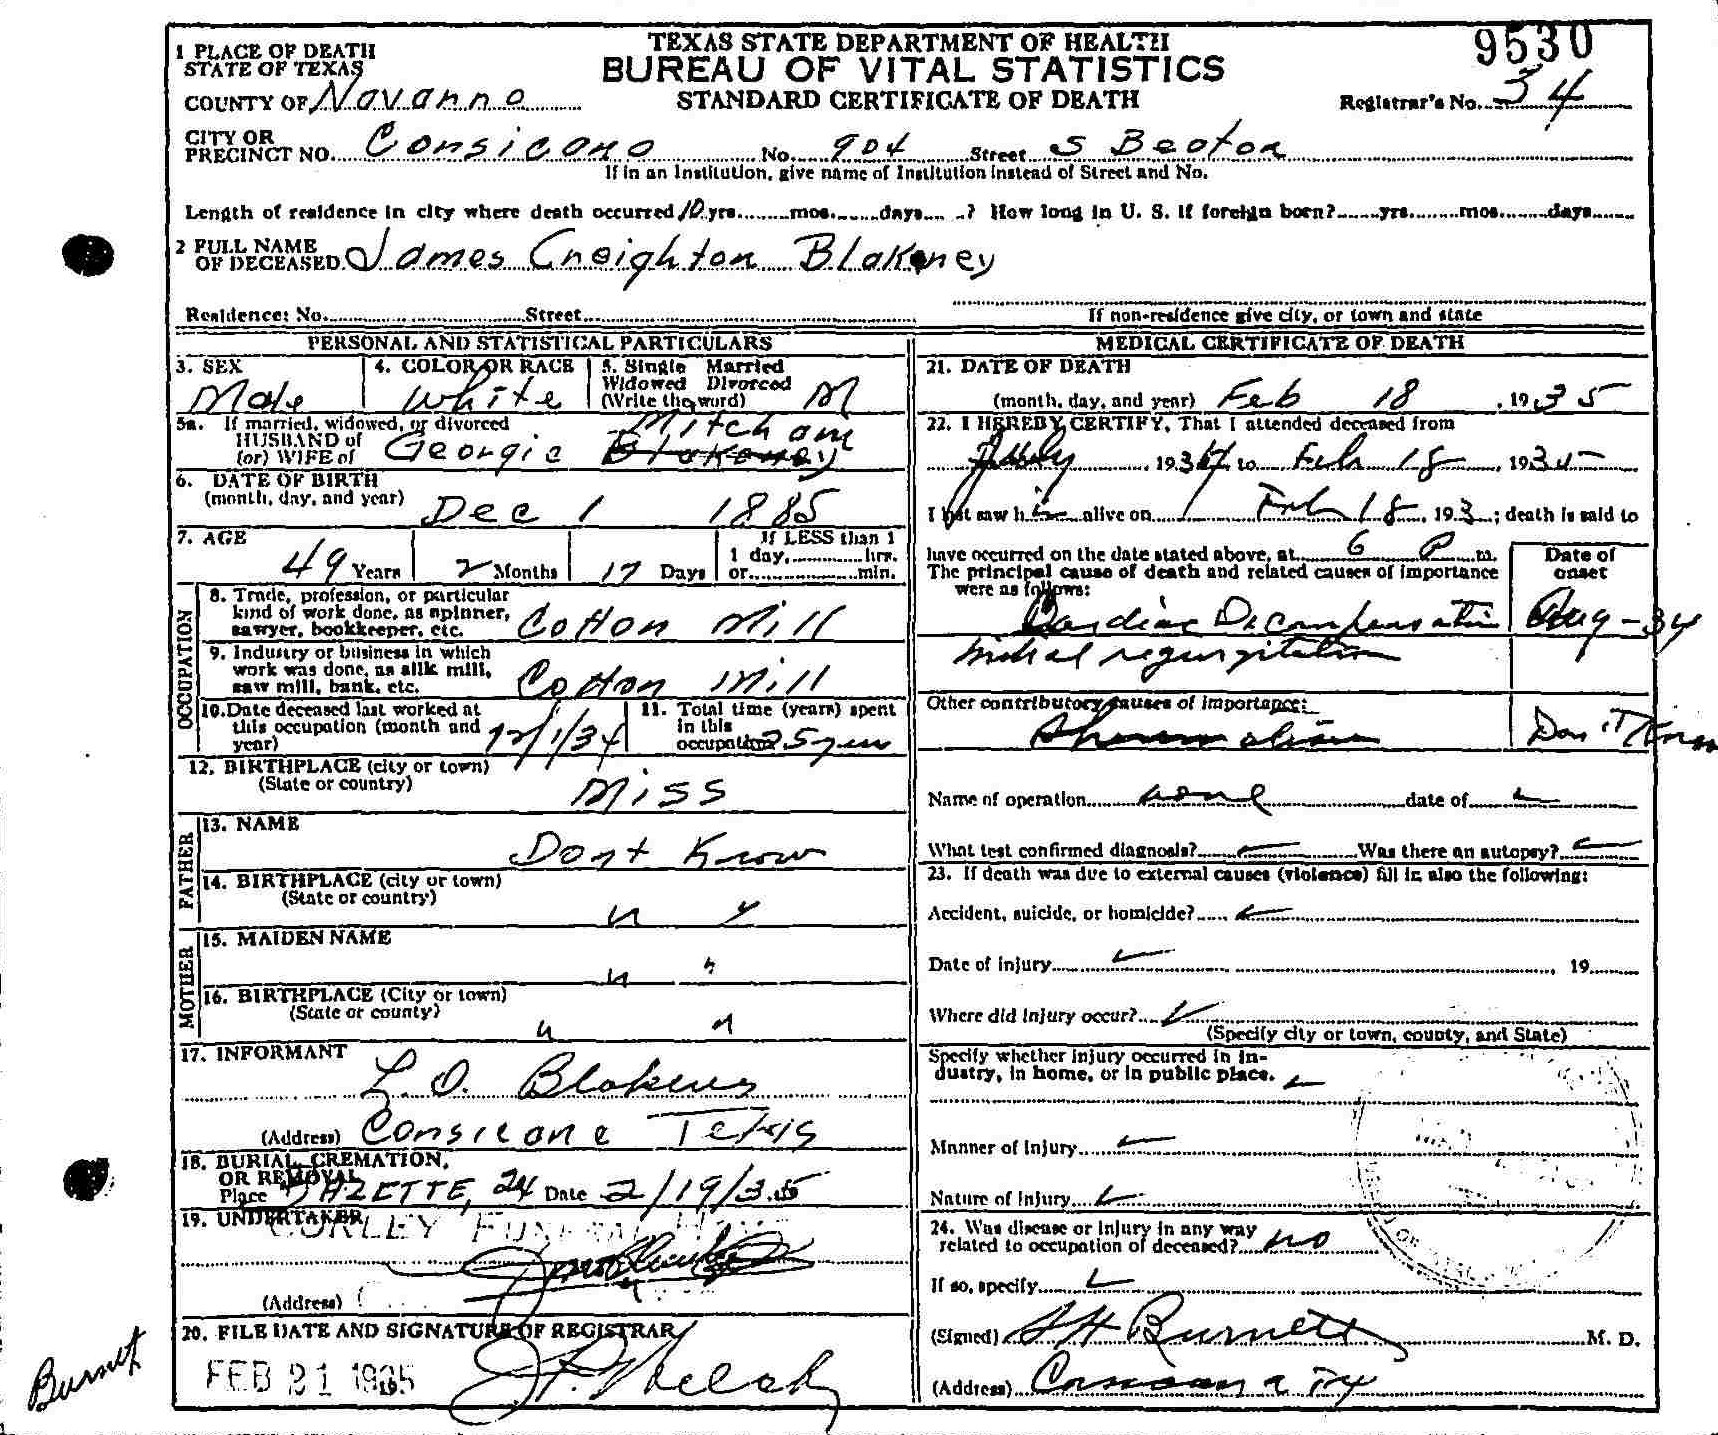 TEXAS STATE DEPARTMENT OF HEALTH
BUREAU OF VITAL STATISTICS
STANDARD CERTIFICATE OF DEATH
9530
Registrar's No. 34
1 PLACE OF DEATH
STATE OF TEXAS
COUNTY OF Navarro
CITY OR
PRECINCT NO. Corsicana No. 904 Street S Beaton
If in an Institution, give name of Institution instead of Street and No.
Length of residence in city where death occurred 10 yrs. mos. days ? How long in U. S. if foreign born? yrs. mos. days
2 FULL NAME
OF DECEASED. James Creighton Blakeney
Residence: No. Street
If non-residence give city, or town and state
PERSONAL AND STATISTICAL PARTICULARS
3. SEX
Male
4. COLOR OR RACE
White
5. Single Married
Widowed Divorced
(Write the word) M
5a. If married, widowed, or divorced
HUSBAND of
(or) WIFE of Georgie Blakeney Mitcham
6. DATE OF BIRTH
(month, day, and year)
Dec 1 1885
7. AGE
49 Years 2 Months 17 Days
If LESS than 1
1 day, hrs.
or min.
OCCUPATION
8. Trade, profession, or particular
kind of work done, as spinner,
sawyer, bookkeeper, etc. Cotton Mill
9. Industry or business in which
work was done, as silk mill,
saw mill, bank, etc. Cotton Mill
10. Date deceased last worked at
this occupation (month and
year) 12/1/34
11. Total time (years) spent
in this
occupation 25 years
12. BIRTHPLACE (city or town)
(State or country)
Miss
FATHER
13. NAME
Dont Know
14. BIRTHPLACE (city or town)
(State or country)
" "
MOTHER
15. MAIDEN NAME
" "
16. BIRTHPLACE (City or town)
(State or county)
" "
17. INFORMANT
L.O. Blakeney
(Address) Corsicana Texas
18. BURIAL, CREMATION,
OR REMOVAL
Place DAZETTE, Date 2/19/35
19. UNDERTAKER
CORLEY FUNERAL HOME
(Address)
20. FILE DATE AND SIGNATURE OF REGISTRAR
FEB 21 1935
MEDICAL CERTIFICATE OF DEATH
21. DATE OF DEATH
(month, day, and year) Feb 18, 1935
22. I HEREBY CERTIFY, That I attended deceased from
July, 1934 to Feb 18, 1935
I last saw him alive on Feb 18, 193 ; death is said to
have occurred on the date stated above, at 6 P m.
The principal cause of death and related causes of importance
were as follows:
Date of
onset
Cardiac Decompensation Aug-34
mitral regurgitation
Other contributory causes of importance:
Don't Know
Name of operation none date of
What test confirmed diagnosis? Was there an autopsy?
23. If death was due to external causes (violence) fill in also the following:
Accident, suicide, or homicide?
Date of injury , 19
Where did injury occur?
(Specify city or town, county, and State)
Specify whether injury occurred in in-
dustry, in home, or in public place.
Manner of injury
Nature of injury
24. Was disease or injury in any way
related to occupation of deceased? no
If so, specify
(Signed) Burnett M. D.
(Address) Corsicana Tx
Burnett